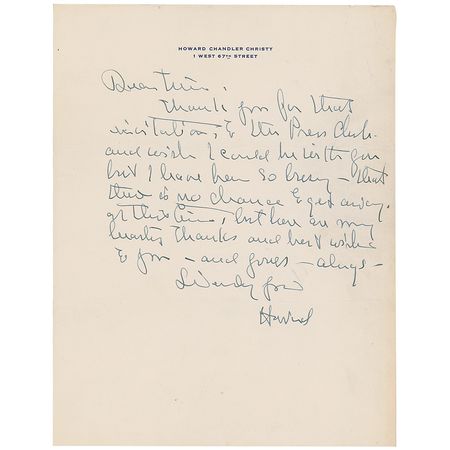 HOWARD CHANDLER CHRISTY
1 WEST 67TH STREET
Dear
Thank you for that
invitation, to the Press Club
and wish I could be with you
but I have been so busy – that
there is no chance to get away
at this time, but here are my
hearty thanks and best wishes
to you – and yours – always –
Howard